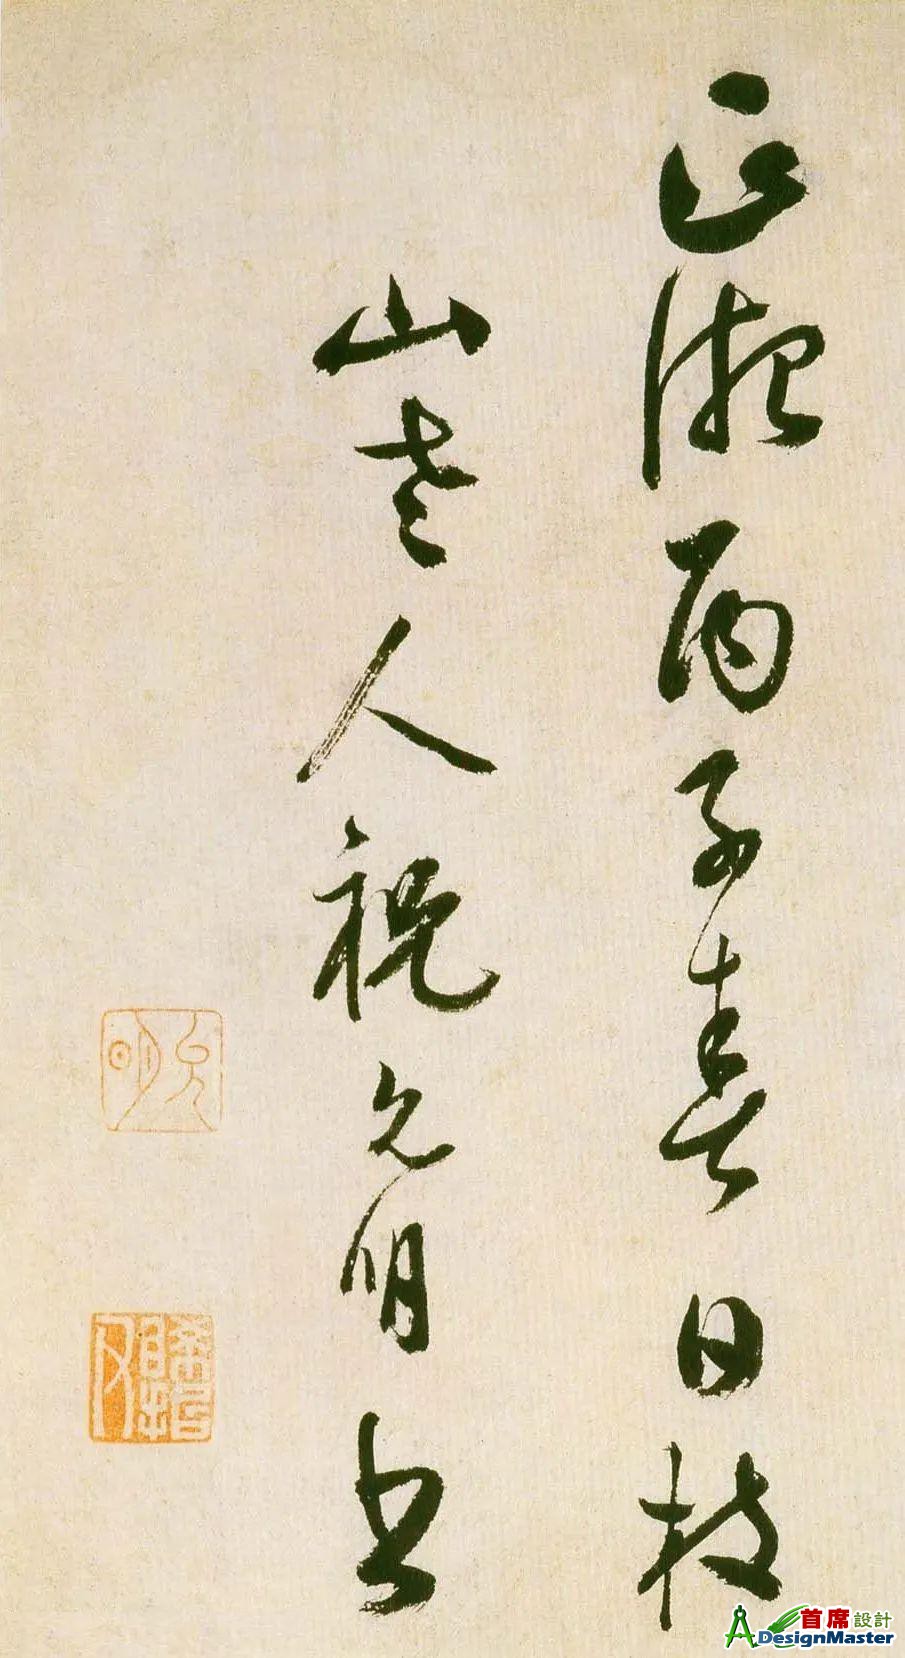 正德丙子春日枝
山老人祝允明書
允明
首席設計
DesignMaster